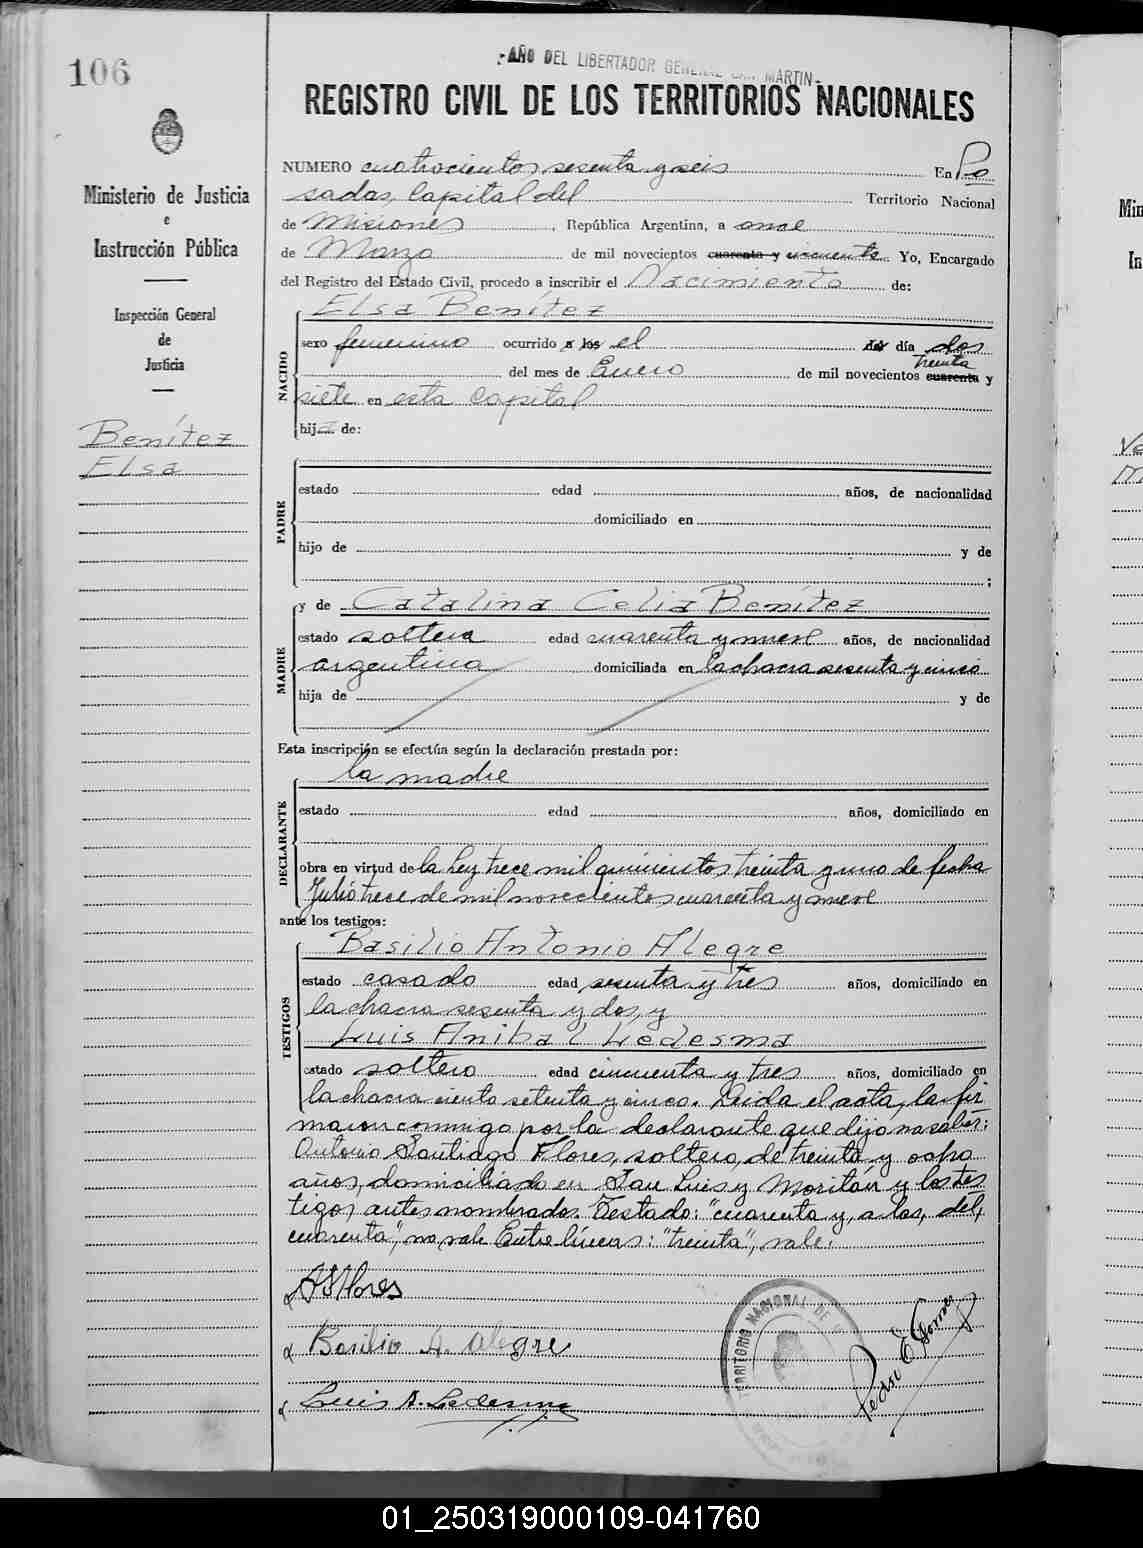 106
-AÑO DEL LIBERTADOR GENERAL SAN MARTIN-
REGISTRO CIVIL DE LOS TERRITORIOS NACIONALES
Ministerio de Justicia
e
Instrucción Pública
Inspección General
de
Justicia
Benítez
Elsa
NUMERO cuatrocientos sesenta y seis En Po
sadas, Capital del Territorio Nacional
de Misiones, República Argentina, a once
de Marzo de mil novecientos cuarenta y cincuenta Yo, Encargado
del Registro del Estado Civil, procedo a inscribir el Nacimiento de:
Elsa Benítez
NACIDO
sexo femenino ocurrido a los el del día dos
treinta
del mes de Enero de mil novecientos cuarenta y
siete en esta Capital
hija de:
PADRE
estado edad años, de nacionalidad
domiciliado en
hijo de y de
;
y de Catalina Celia Benítez
MADRE
estado soltera edad cuarenta y nueve años, de nacionalidad
argentina domiciliada en la chacra sesenta y cinco
hija de y de
Esta inscripción se efectúa según la declaración prestada por:
la madre
DECLARANTE
estado edad años, domiciliado en
obra en virtud de la Ley trece mil quinientos treinta y uno de fecha
Julio trece de mil novecientos cuarenta y nueve
ante los testigos:
Basilio Antonio Alegre
TESTIGOS
estado casado edad sesenta y tres años, domiciliado en
la chacra sesenta y dos, y
Luis Aníbal Ledesma
estado soltero edad cincuenta y tres años, domiciliado en
la chacra ciento setenta y cinco. Leida el acta, la fir
maron conmigo por la declarante que dijo no saber:
Antonio Santiago Flores, soltero, de treinta y ocho
años, domiciliado en San Luis y Moritán y los tes
tigos antes nombrados. Testado: "cuarenta y, a los, del,
cuarenta", no vale. Entre líneas: "treinta", vale.
A S Flores
Basilio A. Alegre
Luis A. Ledesma
TERRITORIO NACIONAL DE
Pedro E Gomez
Min
In
01_250319000109-041760